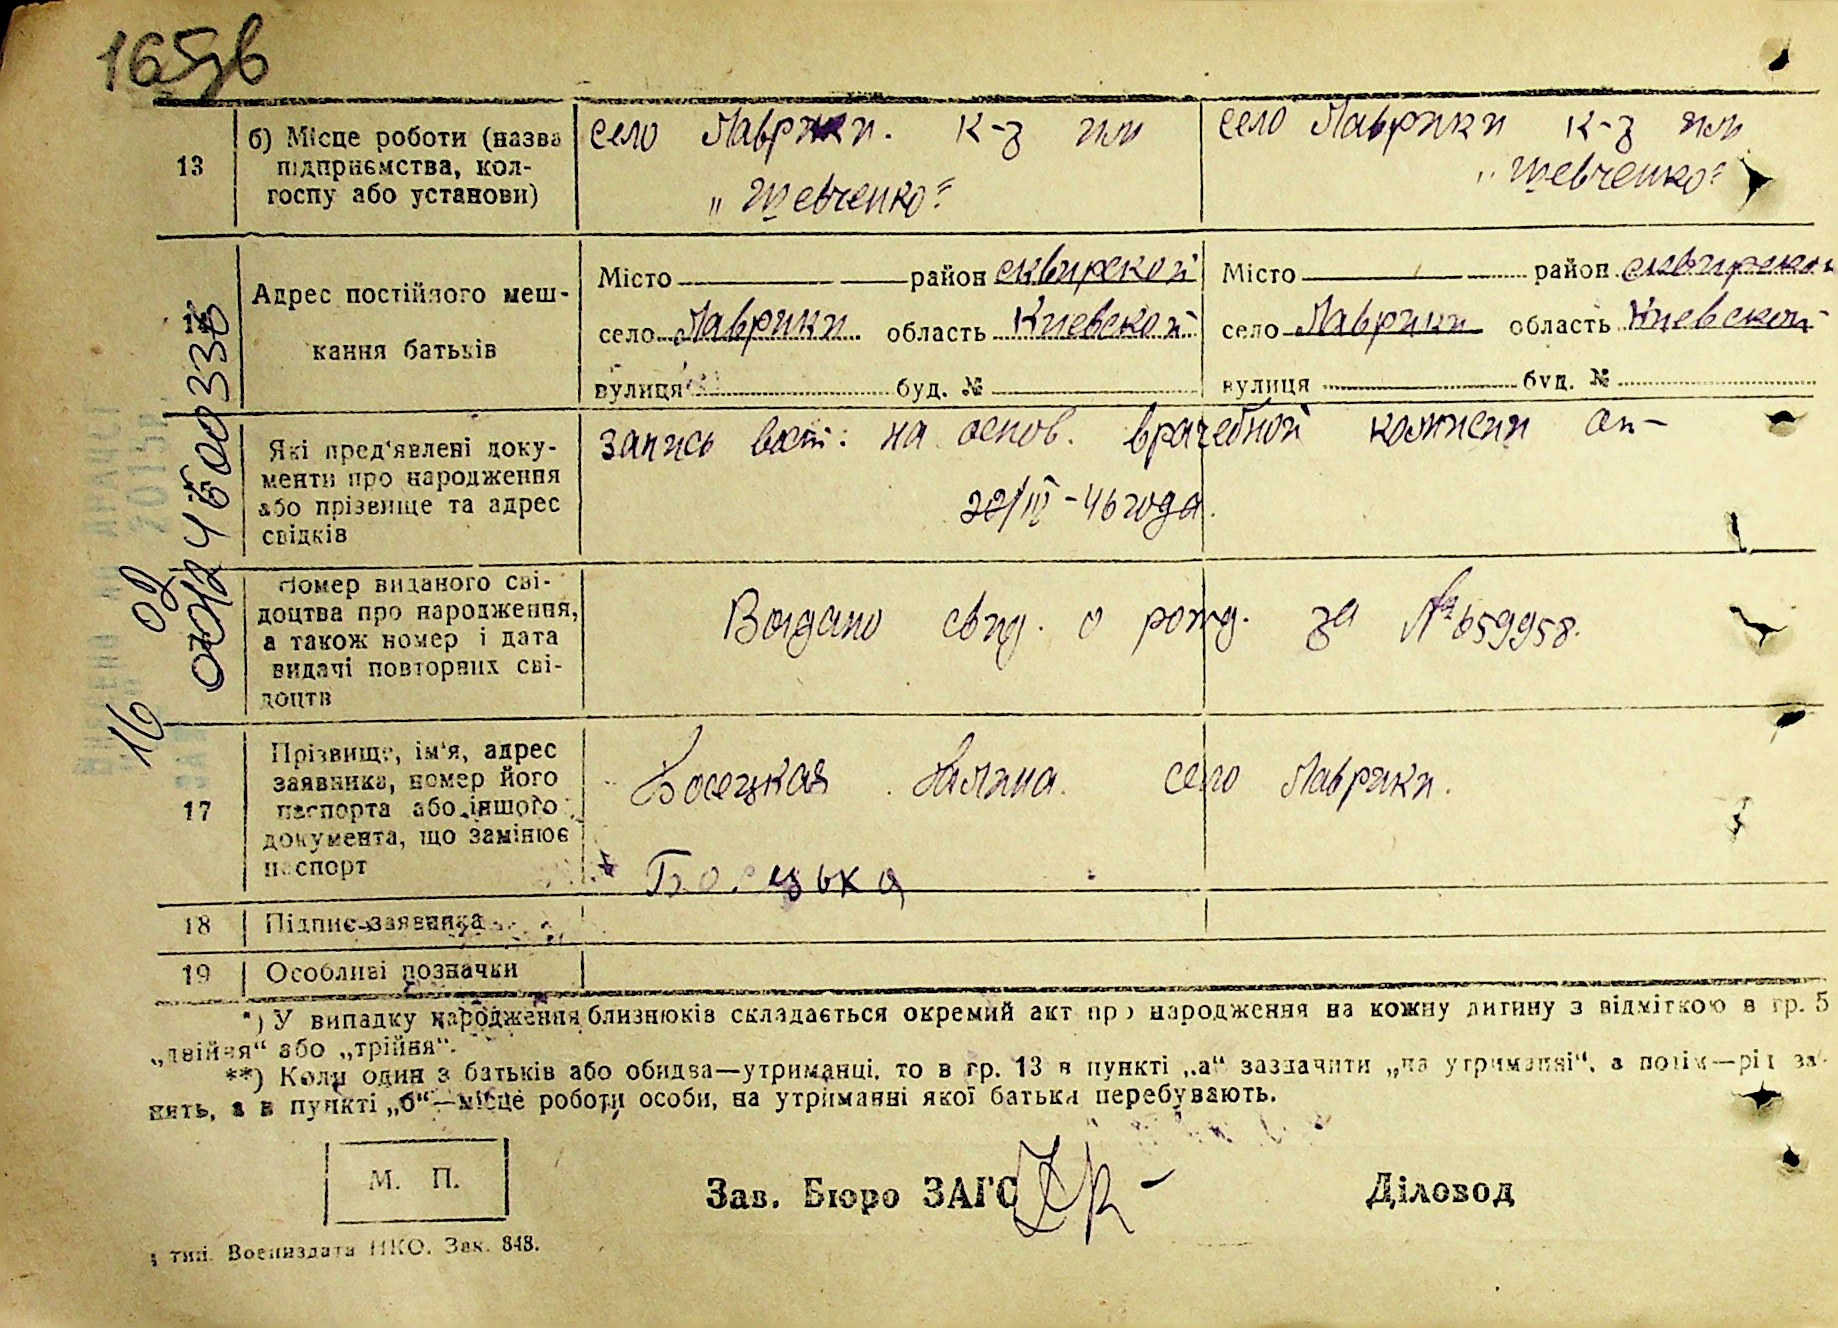 165зв
13
б) Місце роботи (назва
підприємства, кол-
госпу або установи)
село Лаврики. к-з им
„Шевченко“
село Лаврики к-з им
„Шевченко“
14
Адрес постійного меш-
кання батьків
Місто район сквирской
село Лаврики область Киевской
вулиця буд. №
Місто район сквирской
село Лаврики область Киевской
вулиця буд. №
Які пред'явлені доку-
менти про народження
або прізвище та адрес
свідків
запись вост: на основ. врачебной комисии от-
28/IV-46 года.
Номер виданого сві-
доцтва про народження,
а також номер і дата
видачі повторних сві-
доцтв
Выдано свид. о рожд. за № 659958.
17
Прізвище, ім'я, адрес
заявника, номер його
паспорта або іншого
документа, що замінює
паспорт
Босецкая село Лаврики.
18
Підпис заявника
19
Особливі позначки
*) У випадку народження близнюків складається окремий акт про народження на кожну дитину з відміткою в гр. 5
„двійня“ або „трійня“.
**) Коли один з батьків або обидва—утриманці, то в гр. 13 в пункті „а“ зазначити „на утриманні“, а потім—рід за-
нять, а в пункті „б“—місце роботи особи, на утриманні якої батьки перебувають.
М. П.
Зав. Бюро ЗАГС
Діловод
тип. Воениздата НКО. Зак. 848.
16
02